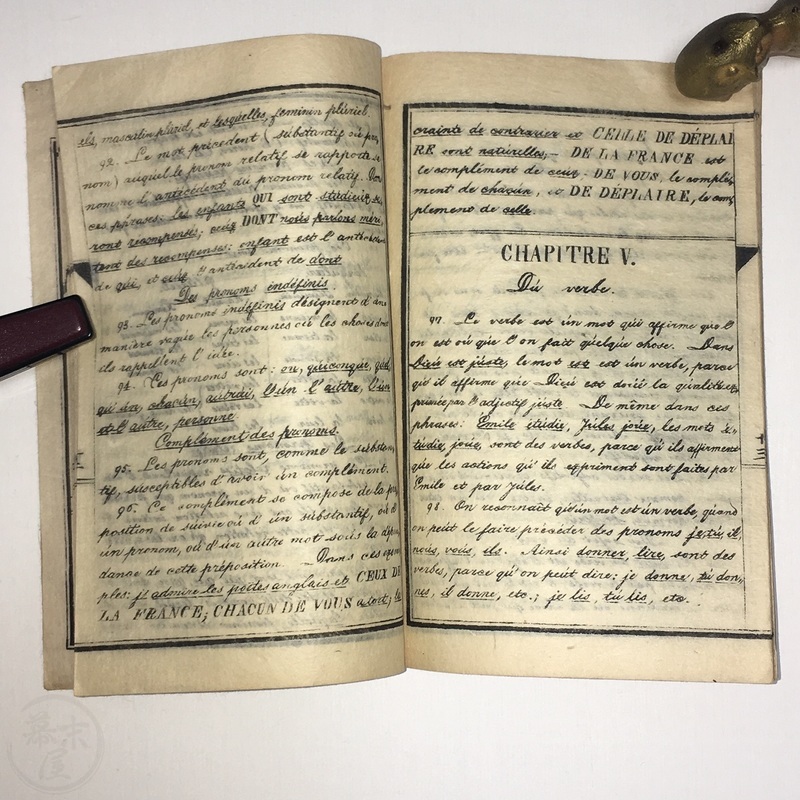 ils, masculin pluriel, et lesquelles, feminin pluriel.
92. Le mot précedent (substantif ou pro
nom) auquel le pronom relatif se rapporte se
nomme l'antécédent du pronom relatif. Dans
ces phrases: les enfants QUI sont studieux, se
ront recompensés; ceux DONT nous parlons méri
tent des recompenses; enfant est l'antécédent
de qui, et ceux l'antécédent de dont
Des pronoms indéfinis.
93. Les pronoms indéfinis désignent d'une
manière vague les personnes où les choses dont
ils rappellent l'idée.
94. Ces pronoms sont: on, quiconque, quel
qu'un, chacun, autrui, l'un l'autre, l'un
et l'autre, personne
Complément des pronoms.
95. Les pronoms sont, comme le substan
tif, susceptibles d'avoir un complément.
96. Ce complément se compose de la pré
position de suivie où d'un substantif, où d'
un pronom, où d'un autre mot sous la dépen
dance de cette préposition — Dans ces exem
ples: j'admire les poëtes anglais et CEUX DE
LA FRANCE; CHACUN DE VOUS a tort; la
crainte de contrarier et CELLE DE DÉPLAI
RE sont naturelles, — DE LA FRANCE est
le complément de ceux - DE VOUS, le complé
ment de chacun, et DE DÉPLAIRE, le com
plement de celle.
CHAPITRE V.
Dù verbe.
97. Le verbe est ùn mot qùi affirme que l'
on est où que l'on fait quelque chose. Dans
Dieù est jùste, le mot est est ùn verbe, parce
qù'il affirme que Dieù est doùé la qùalité ex
primée par l'adjectif jùste — De même dans ces
phrases: Emile étùdie, Jùles joùe, les mots é
tùdie, joùe, sont des verbes, parce qù'ils affirment
qùe les actions qù'ils expriment sont faites par
Emile et par Jùles.
98. On reconnaît qù'ùn mot est ùn verbe, qùand
on peùt le faire précéder des pronoms je, tù, il,
noùs, voùs, ils. Ainsi donner, lire, sont des
verbes, parce qù'on peùt dire: je donne, tù don
nes, il donne, etc.; je lis, tù lis, etc.